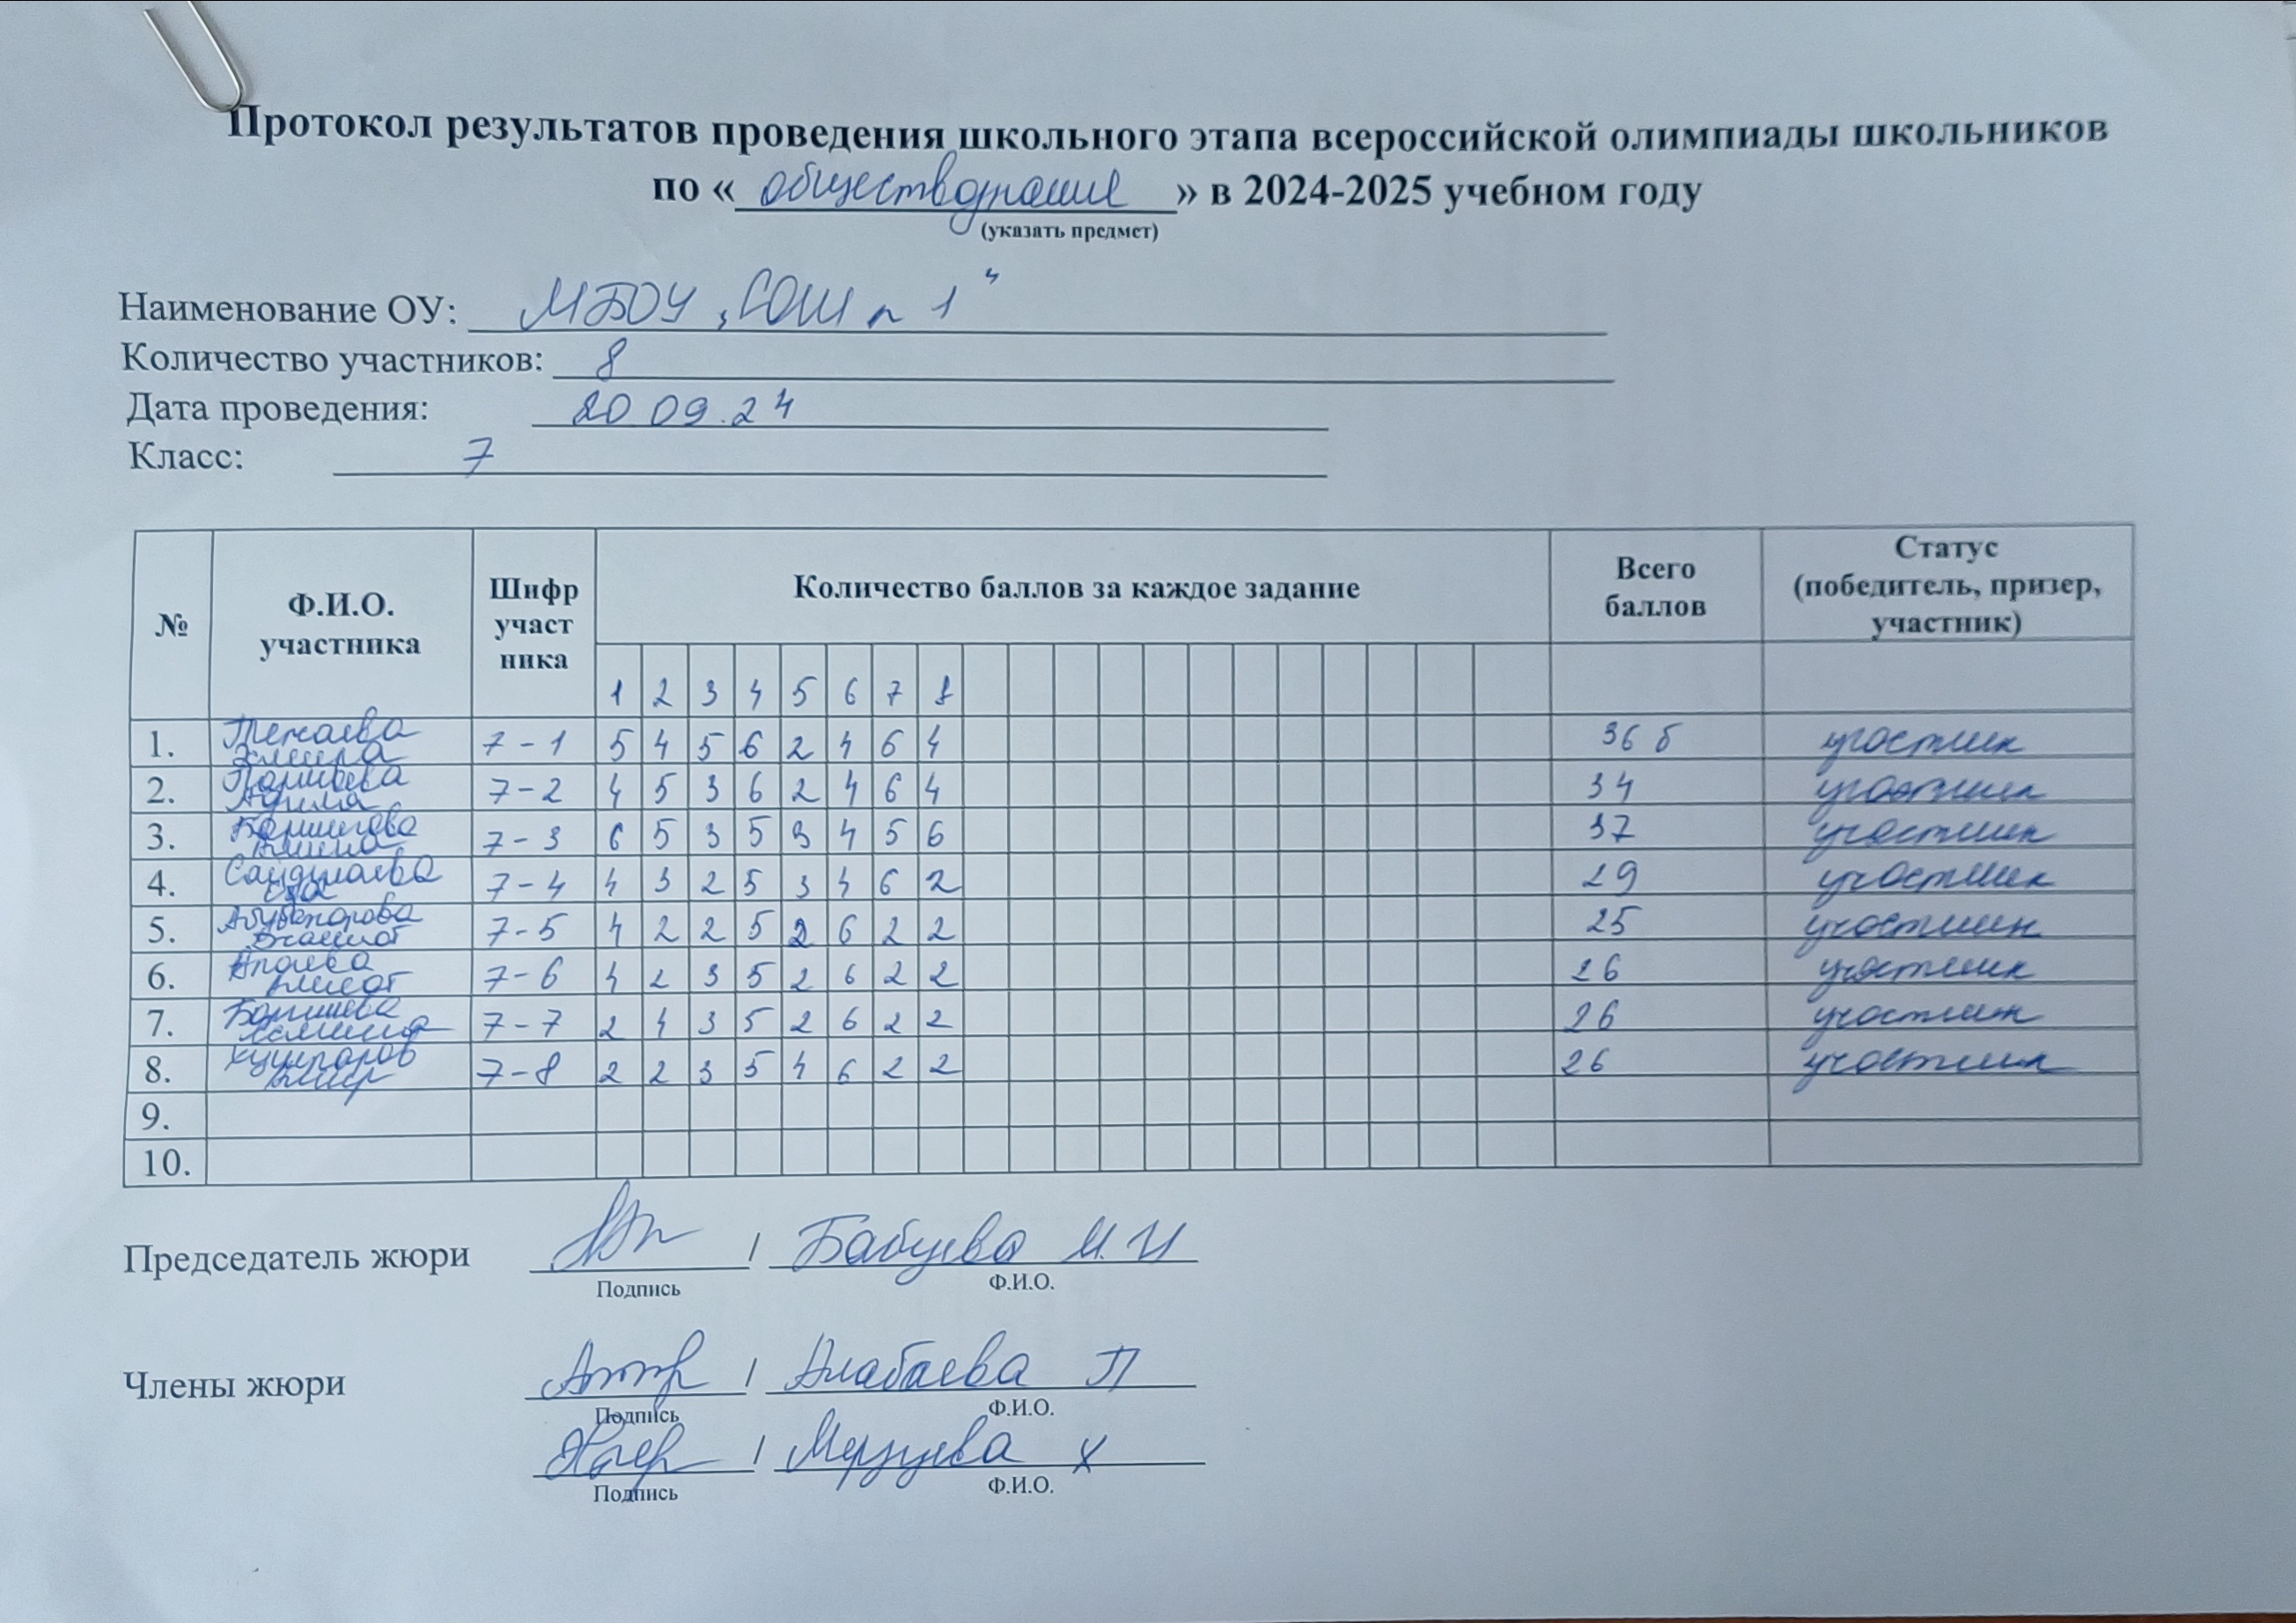 Протокол результатов проведения школьного этапа всероссийской олимпиады школьников
по « обществознание » в 2024-2025 учебном году
(указать предмет)
Наименование ОУ: МБОУ „СОШ n 1"
Количество участников: 8
Дата проведения: 20 09.24
Класс: 7
№ Ф.И.О. участника Шифр участ ника Количество баллов за каждое задание Всего баллов Статус (победитель, призер, участник)
1 2 3 4 5 6 7 8
1. 7-1 5 4 5 6 2 4 6 4 36 б участник
2. 7-2 4 5 3 6 2 4 6 4 34 участник
3. 7-3 6 5 3 5 3 4 5 6 37 участник
4. 7-4 4 3 2 5 3 4 6 2 29 участник
5. 7-5 4 2 2 5 2 6 2 2 25 участник
6. 7-6 4 2 3 5 2 6 2 2 26 участник
7. 7-7 2 4 3 5 2 6 2 2 26 участник
8. 7-8 2 2 3 5 4 6 2 2 26 участник
9.
10.
Председатель жюри / Бабуева И. И
Подпись Ф.И.О.
Члены жюри / Алабаева П
Подпись Ф.И.О.
/ Х
Подпись Ф.И.О.